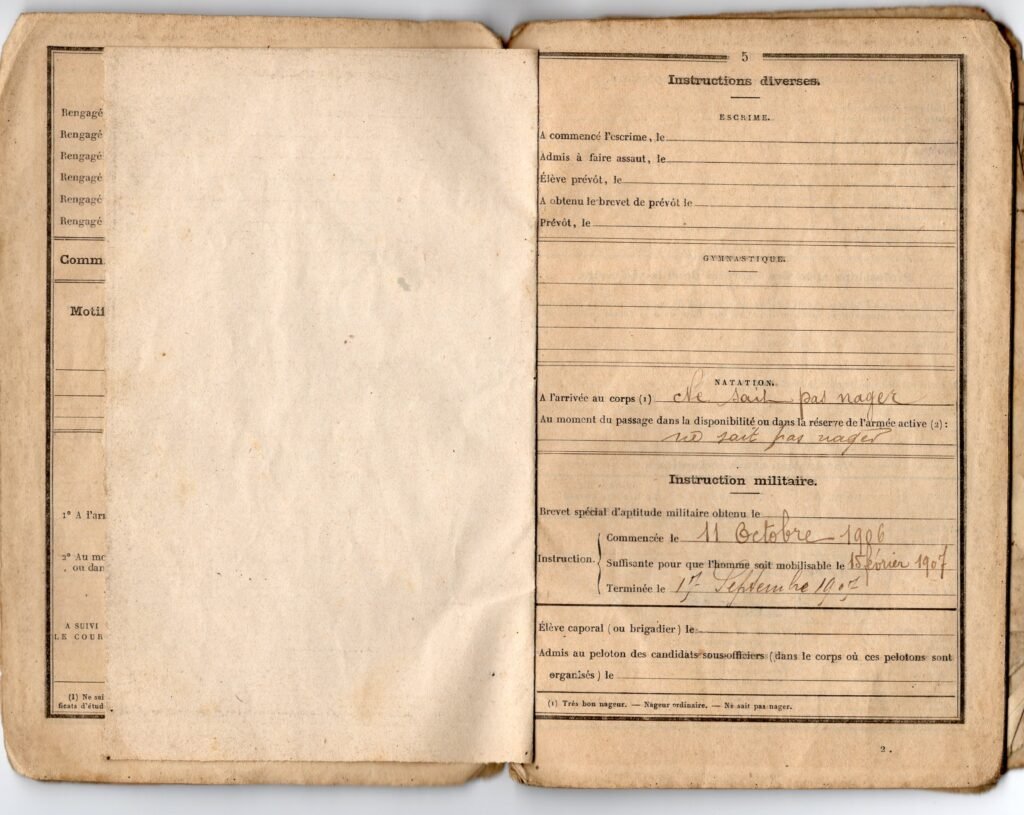 Rengagé
Rengagé
Rengagé
Rengagé
Rengagé
Rengagé
Comm
Motif
1° A l'arr
2° Au mo
ou dan
A SUIVI
LE COUR
(1) Ne sai
ficats d'étud
5
Instructions diverses.
ESCRIME.
A commencé l'escrime, le
Admis à faire assaut, le
Élève prévôt, le
A obtenu le brevet de prévôt le
Prévôt, le
GYMNASTIQUE.
NATATION.
A l'arrivée au corps (1) Ne sait pas nager
Au moment du passage dans la disponibilité ou dans la réserve de l'armée active (2) :
ne sait pas nager
Instruction militaire.
Brevet spécial d'aptitude militaire obtenu le
Commencée le 11 Octobre 1906
Instruction. Suffisante pour que l'homme soit mobilisable le 15 février 1907
Terminée le 17 Septembre 1907
Élève caporal (ou brigadier) le
Admis au peloton des candidats sous-officiers (dans le corps où ces pelotons sont
organisés) le
(1) Très bon nageur. — Nageur ordinaire. — Ne sait pas nager.
2.